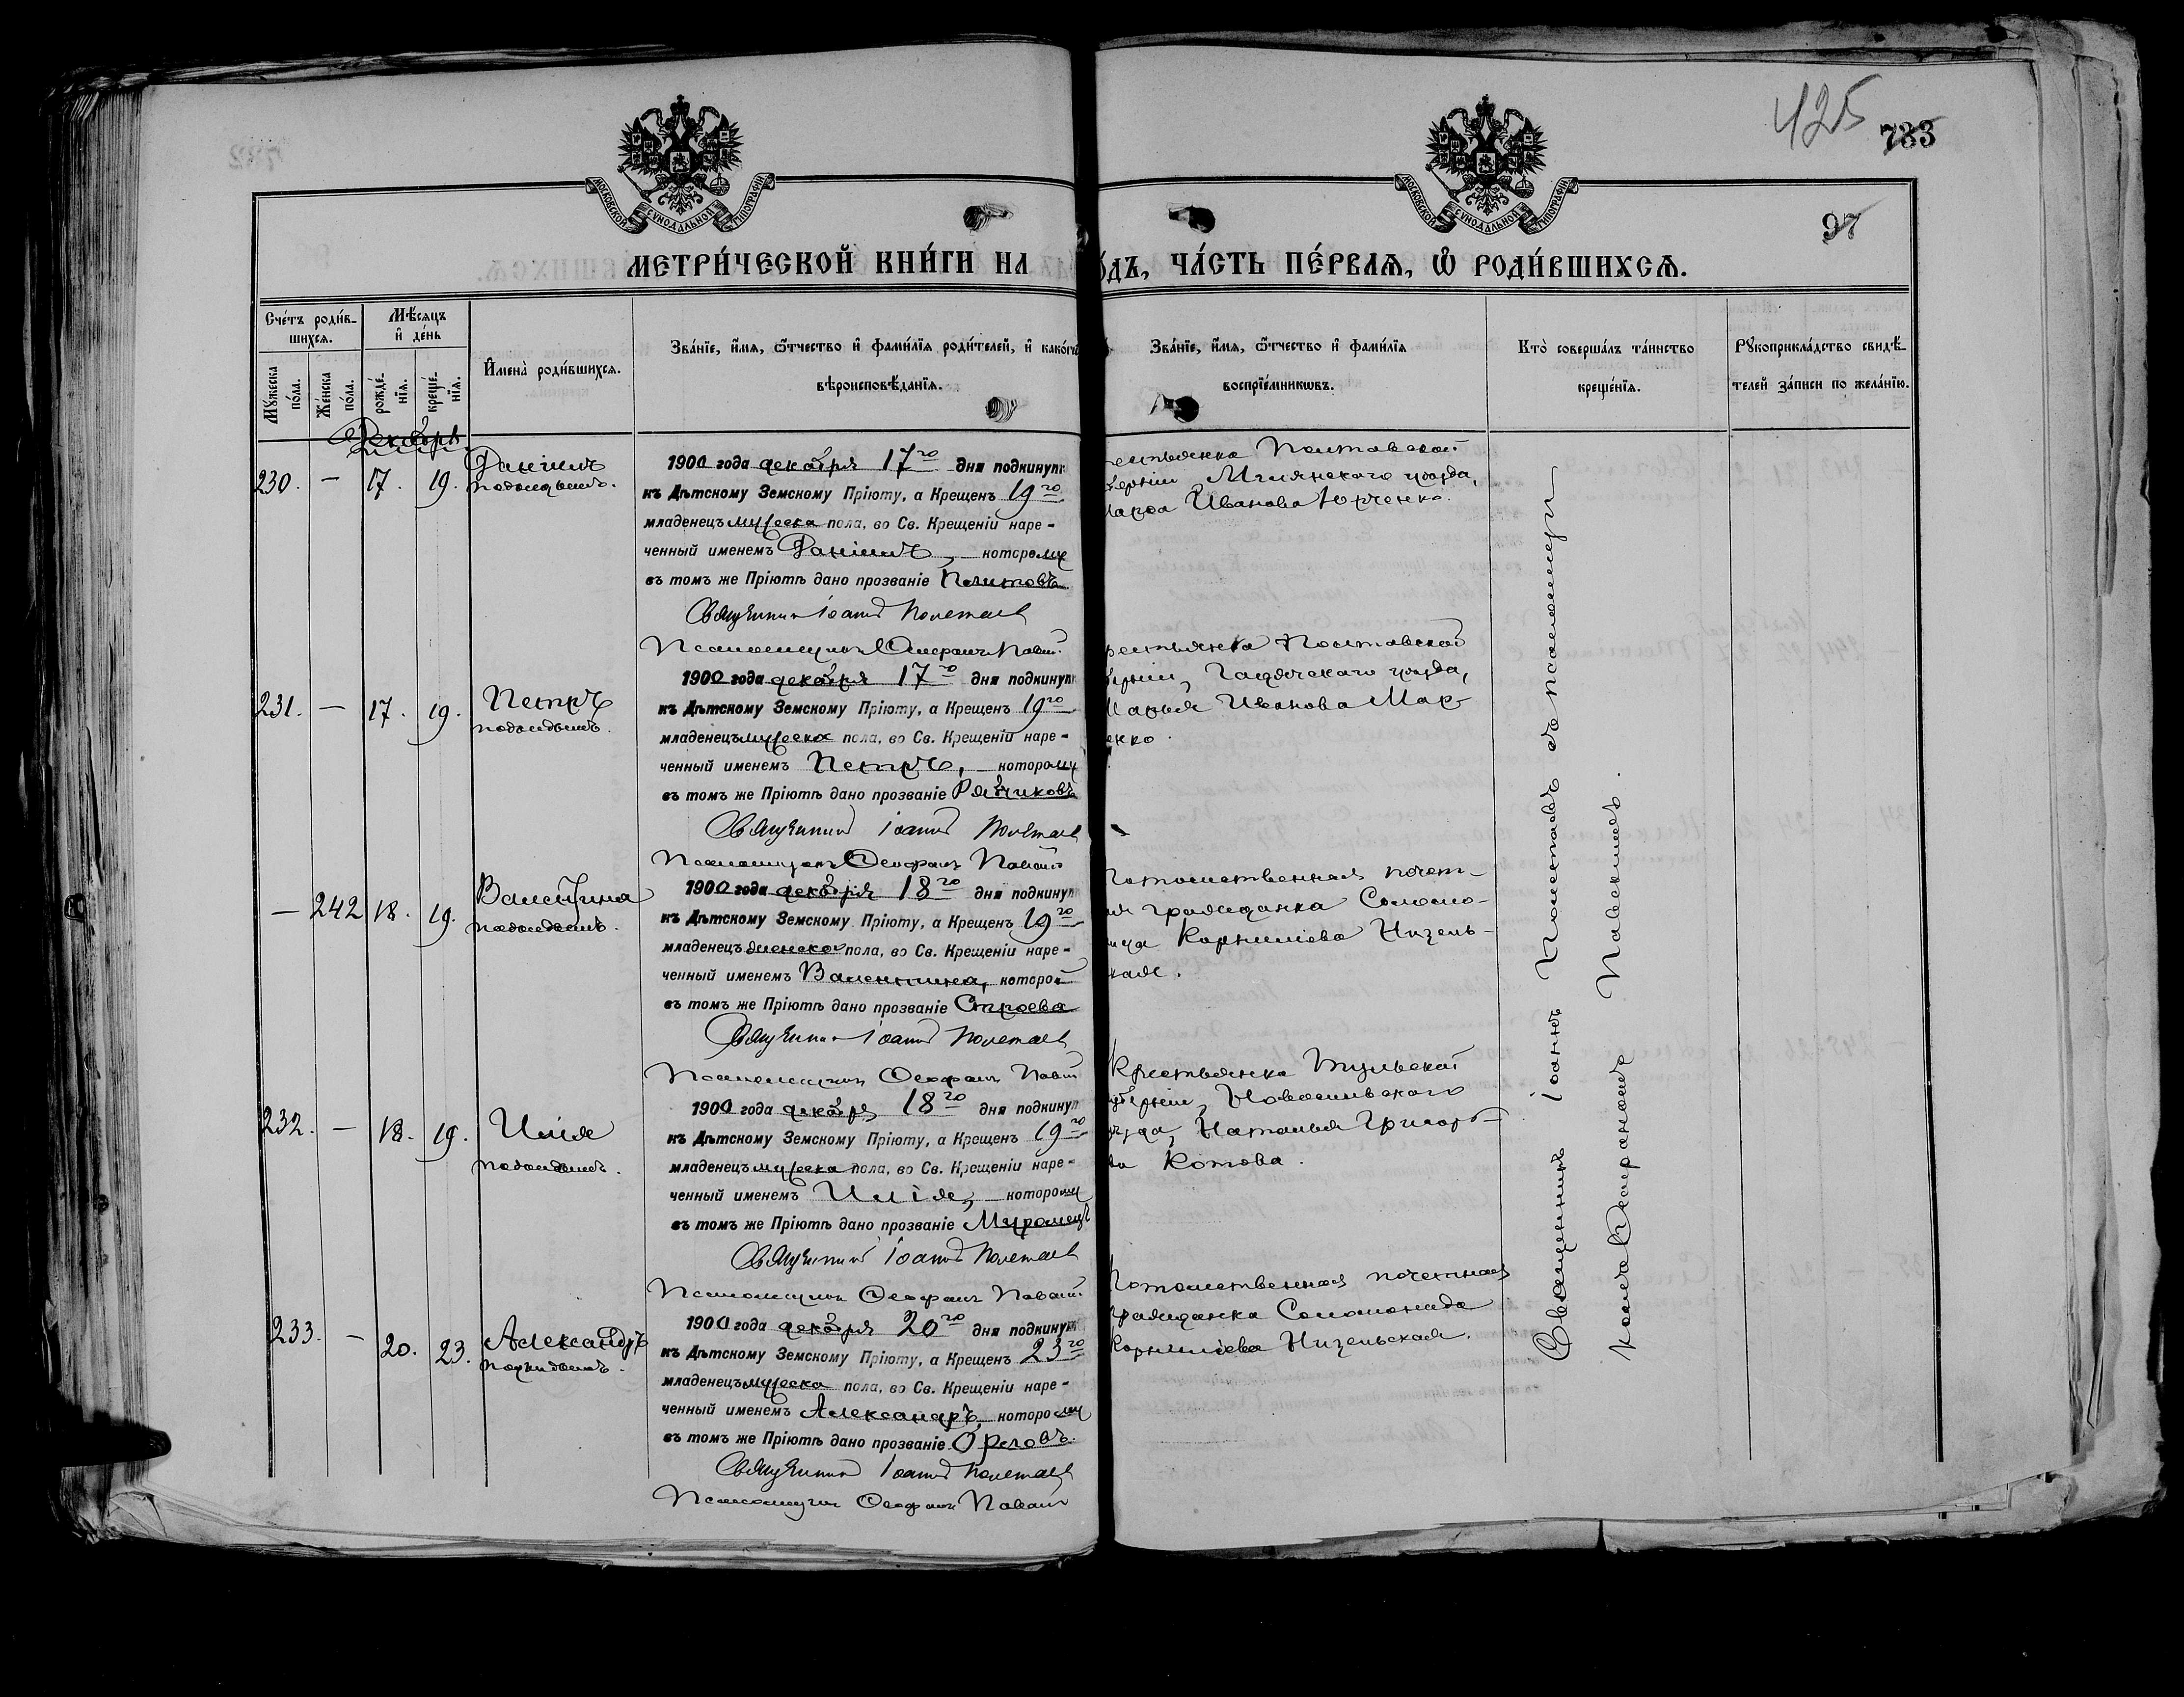 425
733
МОСКОВСКОЙ СѴНОДАЛЬНОЙ ТИПОГРАФІИ
МОСКОВСКОЙ СѴНОДАЛЬНОЙ ТИПОГРАФІИ
97
МЕТРИ́ЧЕСКОЙ КНИ́ГИ НА
О́ДЪ, ЧА́СТЬ ПЕ́РВАѦ, Ѡ҆ РОДИ́ВШИХСѦ.
Сче́тъ роди́в-
шихсѧ.
Мѣ́сѧцъ
и҆ де́нь
Мꙋ́жеска по́ла.
Же́нска по́ла.
рожде́-нїѧ.
креще́-нїѧ.
И҆мена̀ роди́вшихсѧ.
Зва́нїе, и҆́мѧ, ѻ҆́тчество и҆ фами́лїѧ роди́телей, и҆ како́гѡ
вѣроисповѣ́данїѧ.
Зва́нїе, и҆́мѧ, ѻ҆́тчество и҆ фами́лїѧ
воспрїе́мникѡвъ.
Кто̀ соверша́лъ та́инство
креще́нїѧ.
Рꙋкоприкла́дство свидѣ́-
телей за́писи по жела́нїю.
Декабрь
230. – 17. 19. Даніилъ
подкидышъ.
1900 года декабря 17го дня подкинут
къ Дѣтскому Земскому Пріюту, а Крещенъ 19го
младенецъ мужеска пола, во Св. Крещеніи наре-
ченный именемъ Даніилъ, которому
въ томъ же Пріютѣ дано прозваніе
Священникъ Іоаннъ Полетаевъ
Псаломщикъ Ѳеофанъ
естьянка Полтавской
берніи, уѣзда,
Иванова Юрченко.
231. – 17. 19. Петръ
подкидышъ.
1900 года декабря 17го дня подкинут
къ Дѣтскому Земскому Пріюту, а Крещенъ 19го
младенецъ мужеска пола, во Св. Крещеніи наре-
ченный именемъ Петръ, которому
въ томъ же Пріютѣ дано прозваніе Рябчиковъ
Священникъ Іоаннъ Полетаевъ
Псаломщикъ Ѳеофанъ
рестьянка Полтавской
берніи, Гадячскаго уѣзда,
Марья Иванова Мар-
енко.
– 242 18. 19. Валентина
подкидышъ.
1900 года декабря 18го дня подкинут
къ Дѣтскому Земскому Пріюту, а Крещенъ 19го
младенецъ женска пола, во Св. Крещеніи наре-
ченный именемъ Валентина, которой
въ томъ же Пріютѣ дано прозваніе Строева
Священникъ Іоаннъ Полетаевъ
Псаломщикъ Ѳеофанъ
Потомственная почет-
ая гражданка Соломо-
нида Корниліева Низель-
ская.
232. – 18. 19. Илія
подкидышъ.
1900 года декабря 18го дня подкинут
къ Дѣтскому Земскому Пріюту, а Крещенъ 19го
младенецъ мужеска пола, во Св. Крещеніи наре-
ченный именемъ Илія, которому
въ томъ же Пріютѣ дано прозваніе Муромецъ
Священникъ Іоаннъ Полетаевъ
Псаломщикъ Ѳеофанъ
Крестьянка Тульской
губерніи, Новосильскаго
уѣзда, Наталья Григорь-
ва Котова.
233. – 20. 23. Александръ
подкидышъ.
1900 года декабря 20го дня подкинут
къ Дѣтскому Земскому Пріюту, а Крещенъ 23го
младенецъ мужеска пола, во Св. Крещеніи наре-
ченный именемъ Александръ, которому
въ томъ же Пріютѣ дано прозваніе Ореловъ.
Священникъ Іоаннъ Полетаевъ
Псаломщикъ Ѳеофанъ
Потомственная почетная
гражданка Соломонида
Корниліева Низельская.
Священникъ Іоаннъ Полетаевъ съ псаломщи
комъ Ѳеофаномъ Павскимъ.